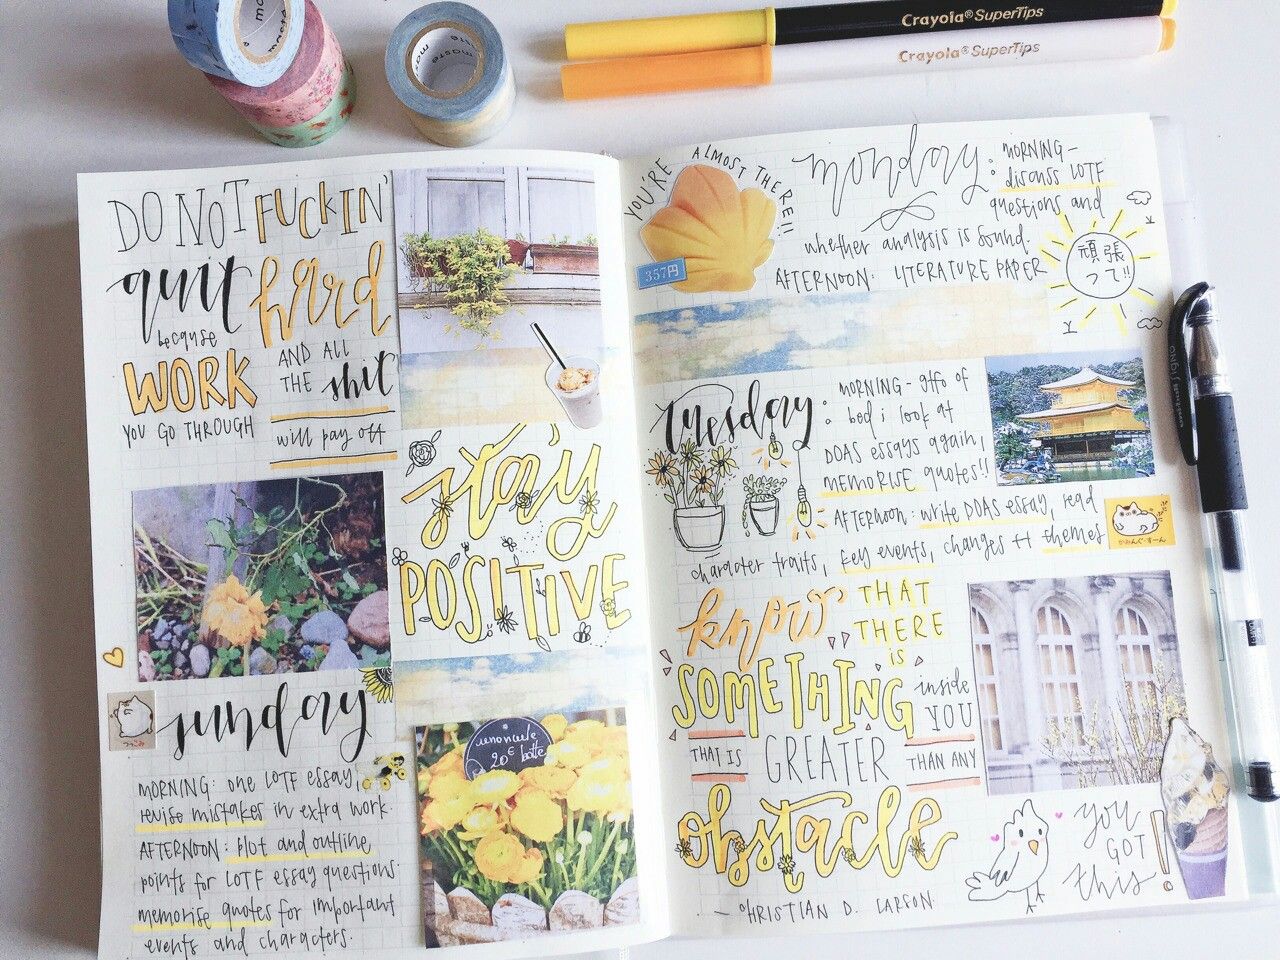 maste
maste
Crayola® SuperTips
Crayola® SuperTips
DO NOT FUCKIN'
quit hard
because
WORK AND ALL
THE shit
YOU GO THROUGH
will pay off
stay
POSITIVE
sunday
MORNING: one LOTF essay,
revise mistakes in extra work
AFTERNOON: plot and outline
points for LOTF essay questions
memorise quotes for important
events and characters.
20€ botte
YOU'RE ALMOST THERE!!
357円
monday: MORNING-
discuss LOTF
questions and
whether analysis is sound.
AFTERNOON: LITERATURE PAPER
頑張
って!!
tuesday: MORNING- gtfo of
bed i look at
DOAS essays again,
MEMORISE quotes!!
AFTERNOON: write DOAS essay, read
character traits, key events, changes ++ themes
know THAT
THERE
is
SOMETHING inside
YOU
THAT IS GREATER THAN ANY
obstacle
— CHRISTIAN D. LARSON
you
GOT
this!